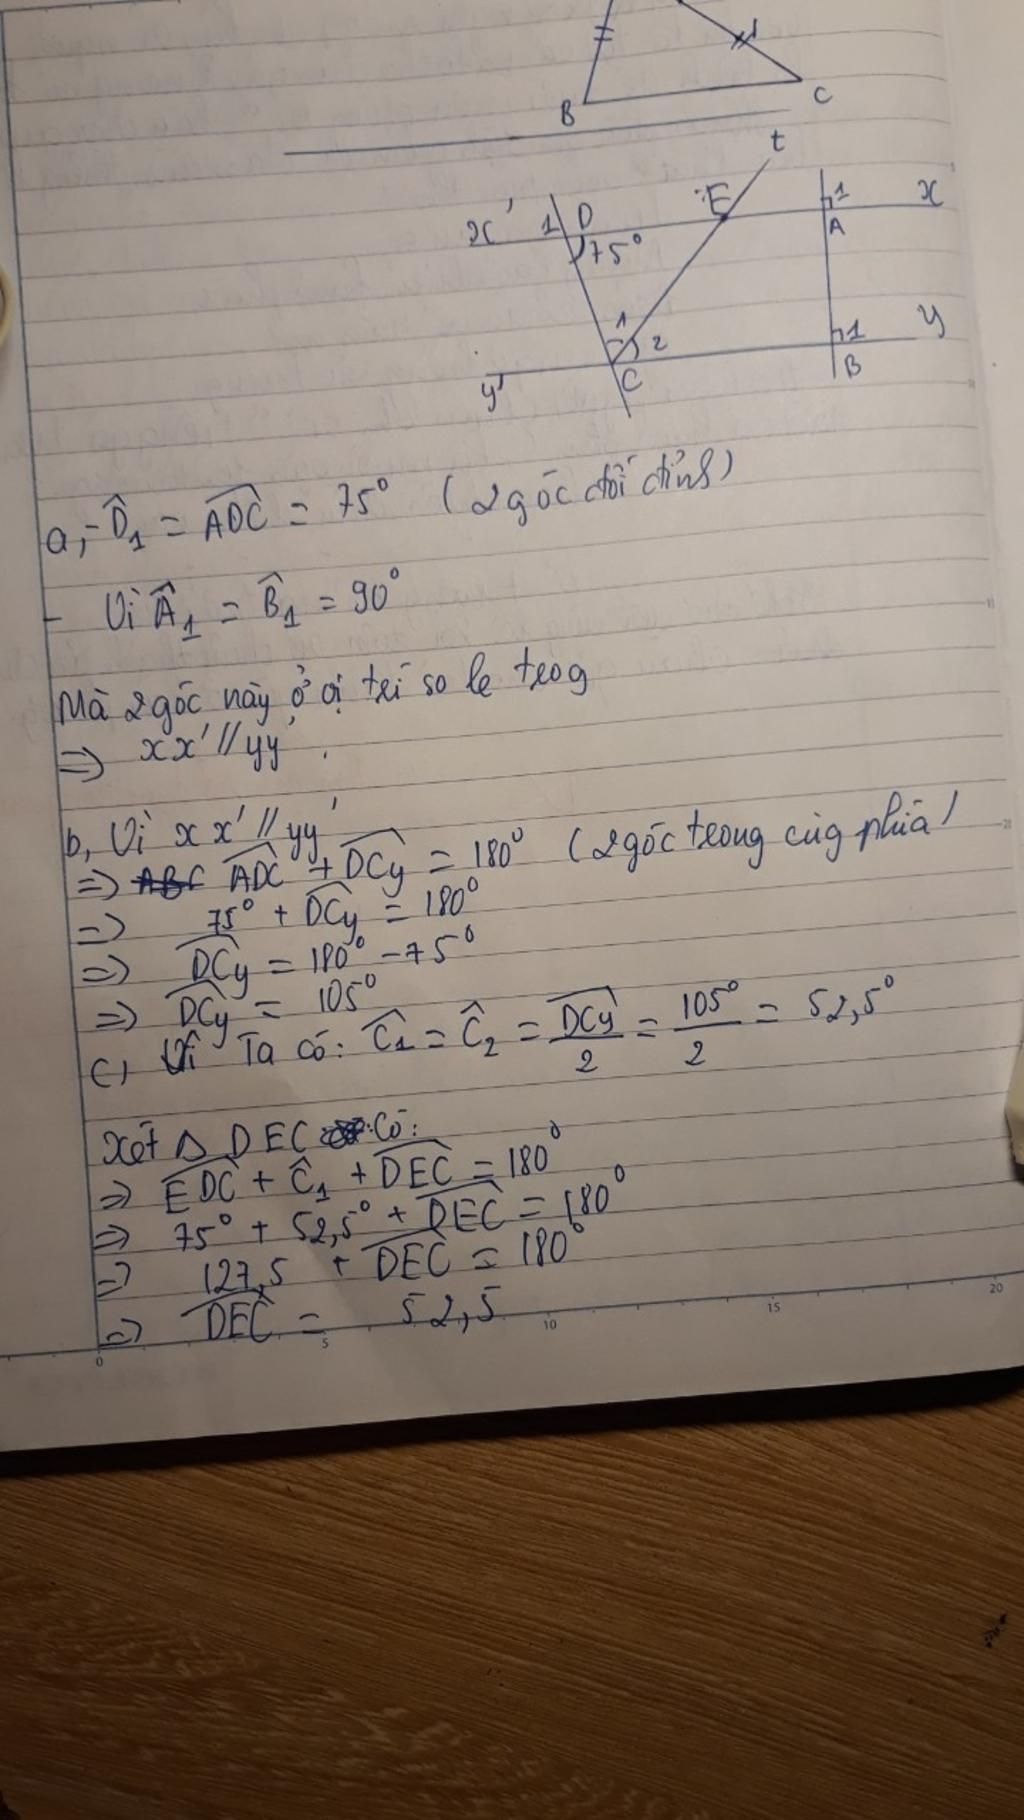 B
C
t
x'
1
D
E
1
x
75°
A
1
2
1
y
y'
C
B
a, - D̂₁ = ADC = 75° (2 góc đối đỉnh)
- Vì Â₁ = B̂₁ = 90°
Mà 2 góc này ở vị trí so le trog
=> xx' // yy'.
b, Vì xx' // yy'
=> ADC + DCy = 180° (2 góc trong cùg phía)
=> 75° + DCy = 180°
=> DCy = 180° - 75°
=> DCy = 105°
c, Vì Ta có: Ĉ₁ = Ĉ₂ = DCy/2 = 105°/2 = 52,5°
Xét Δ DEC có:
=> EDC + Ĉ₁ + DEC = 180°
=> 75° + 52,5° + DEC = 180°
=> 127,5 + DEC = 180°
=> DEC = 52,5
0 5 10 15 20